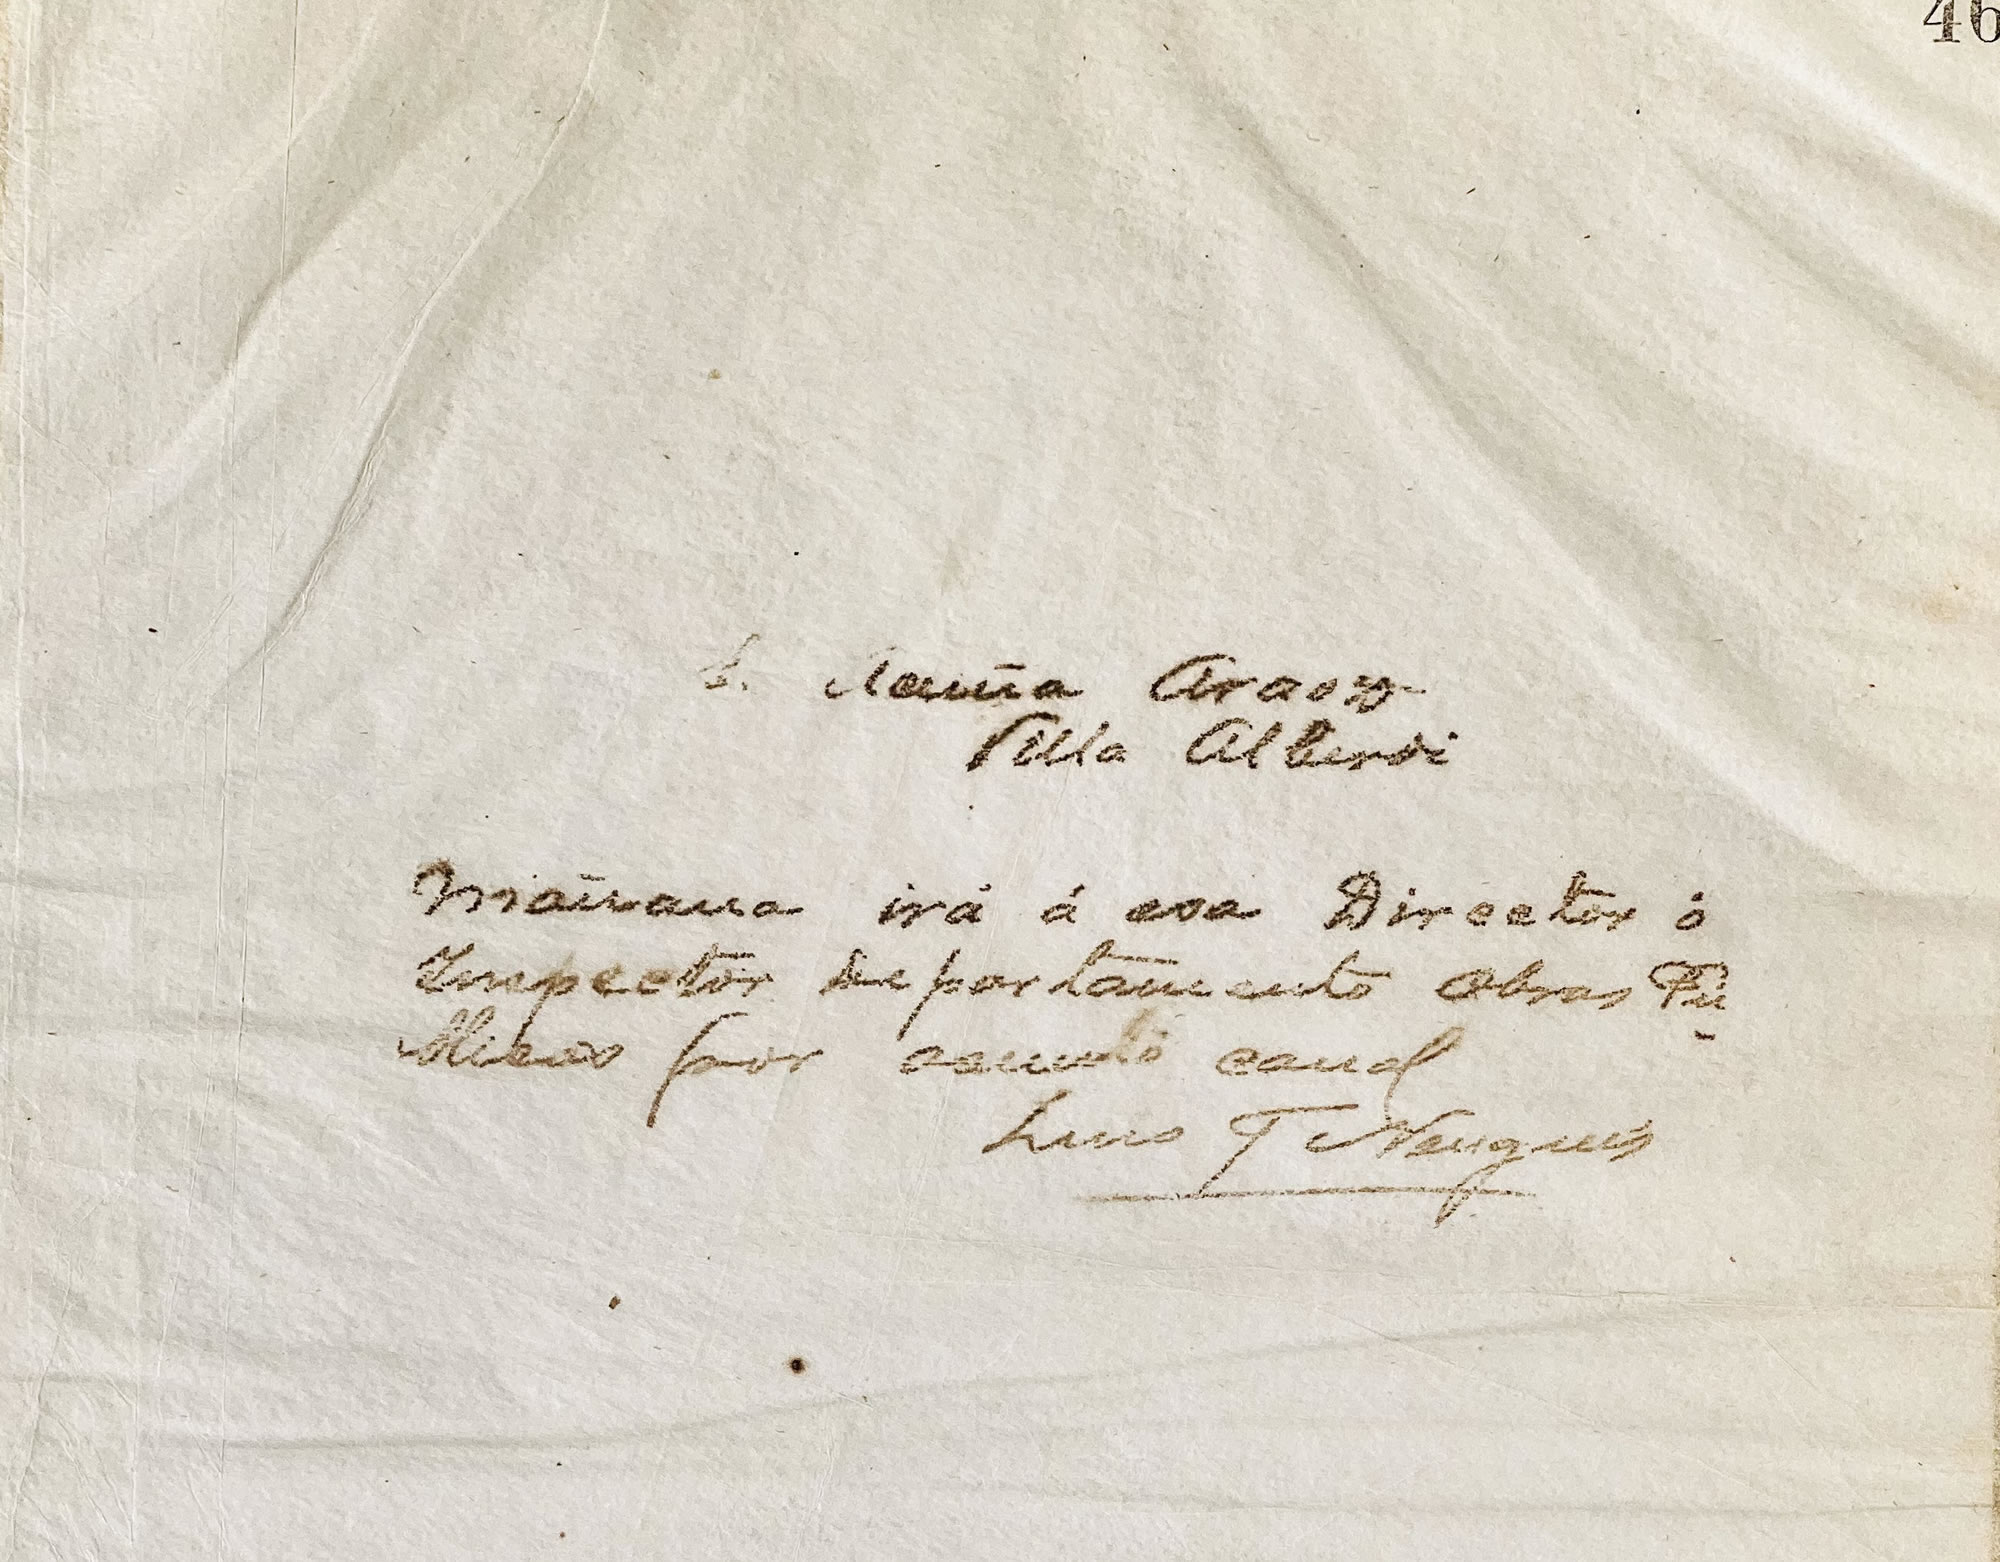 46
S. Acuña Araoz
Villa Alberdi
Mañana irá á esa Director ó
Inspector Departamento Obras Pú
blicas por asunto canal
Luis F Nougués